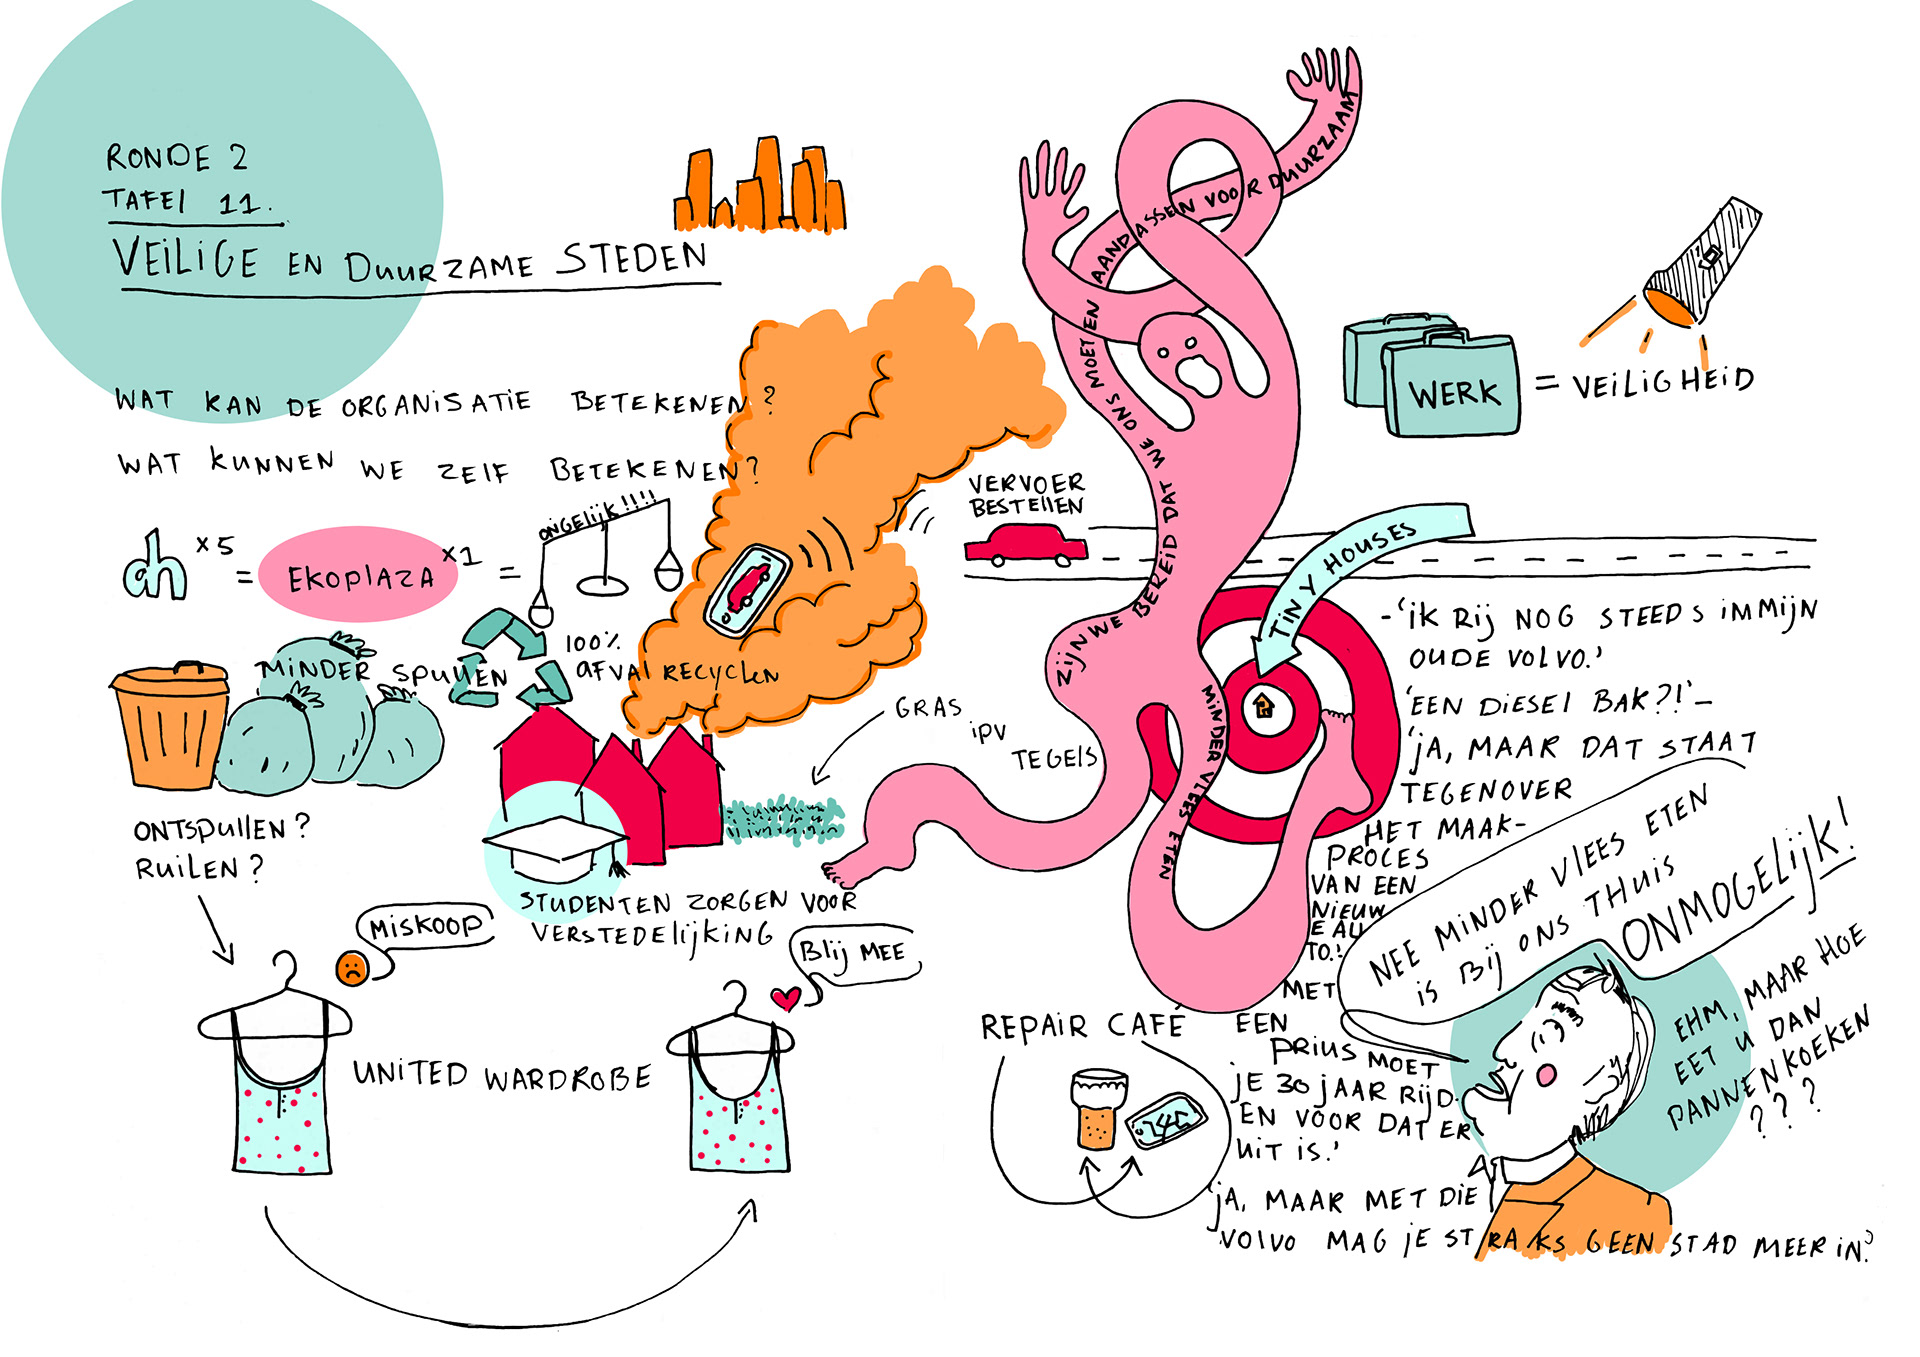 RONDE 2
TAFEL 11.
VEILIGE EN DUURZAME STEDEN
WAT KAN DE ORGANISATIE BETEKENEN?
WAT KUNNEN WE ZELF BETEKENEN?
ah x5 = EKOPLAZA x1 =
ONGELIJK!!!!
MINDER SPULLEN
100%
AFVAL RECYCLEN
ONTSPULLEN?
RUILEN?
GRAS
IPV
TEGELS
STUDENTEN ZORGEN VOOR
VERSTEDELIJKING
MISKOOP
BLIJ MEE
UNITED WARDROBE
VERVOER
BESTELLEN
ZIJN WE BEREID DAT WE ONS MOETEN AANPASSEN VOOR DUURZAAM
MINDER VLEES ETEN
TINY HOUSES
WERK = VEILIGHEID
-'IK RIJ NOG STEEDS IM MIJN
OUDE VOLVO.'
'EEN DIESEL BAK?!'-
'JA, MAAR DAT STAAT
TEGENOVER
HET MAAK-
PROCES
VAN EEN
NIEUW
E AU
TO.'
MET
EEN
PRIUS MOET
JE 30 JAAR RIJD.
EN VOOR DAT ER
UIT IS.'
'JA, MAAR MET DIE
VOLVO MAG JE STRAKS GEEN STAD MEER IN.'
REPAIR CAFÉ
NEE MINDER VLEES ETEN
IS BIJ ONS THUIS
ONMOGELIJK!
EHM, MAAR HOE
EET U DAN
PANNENKOEKEN
???